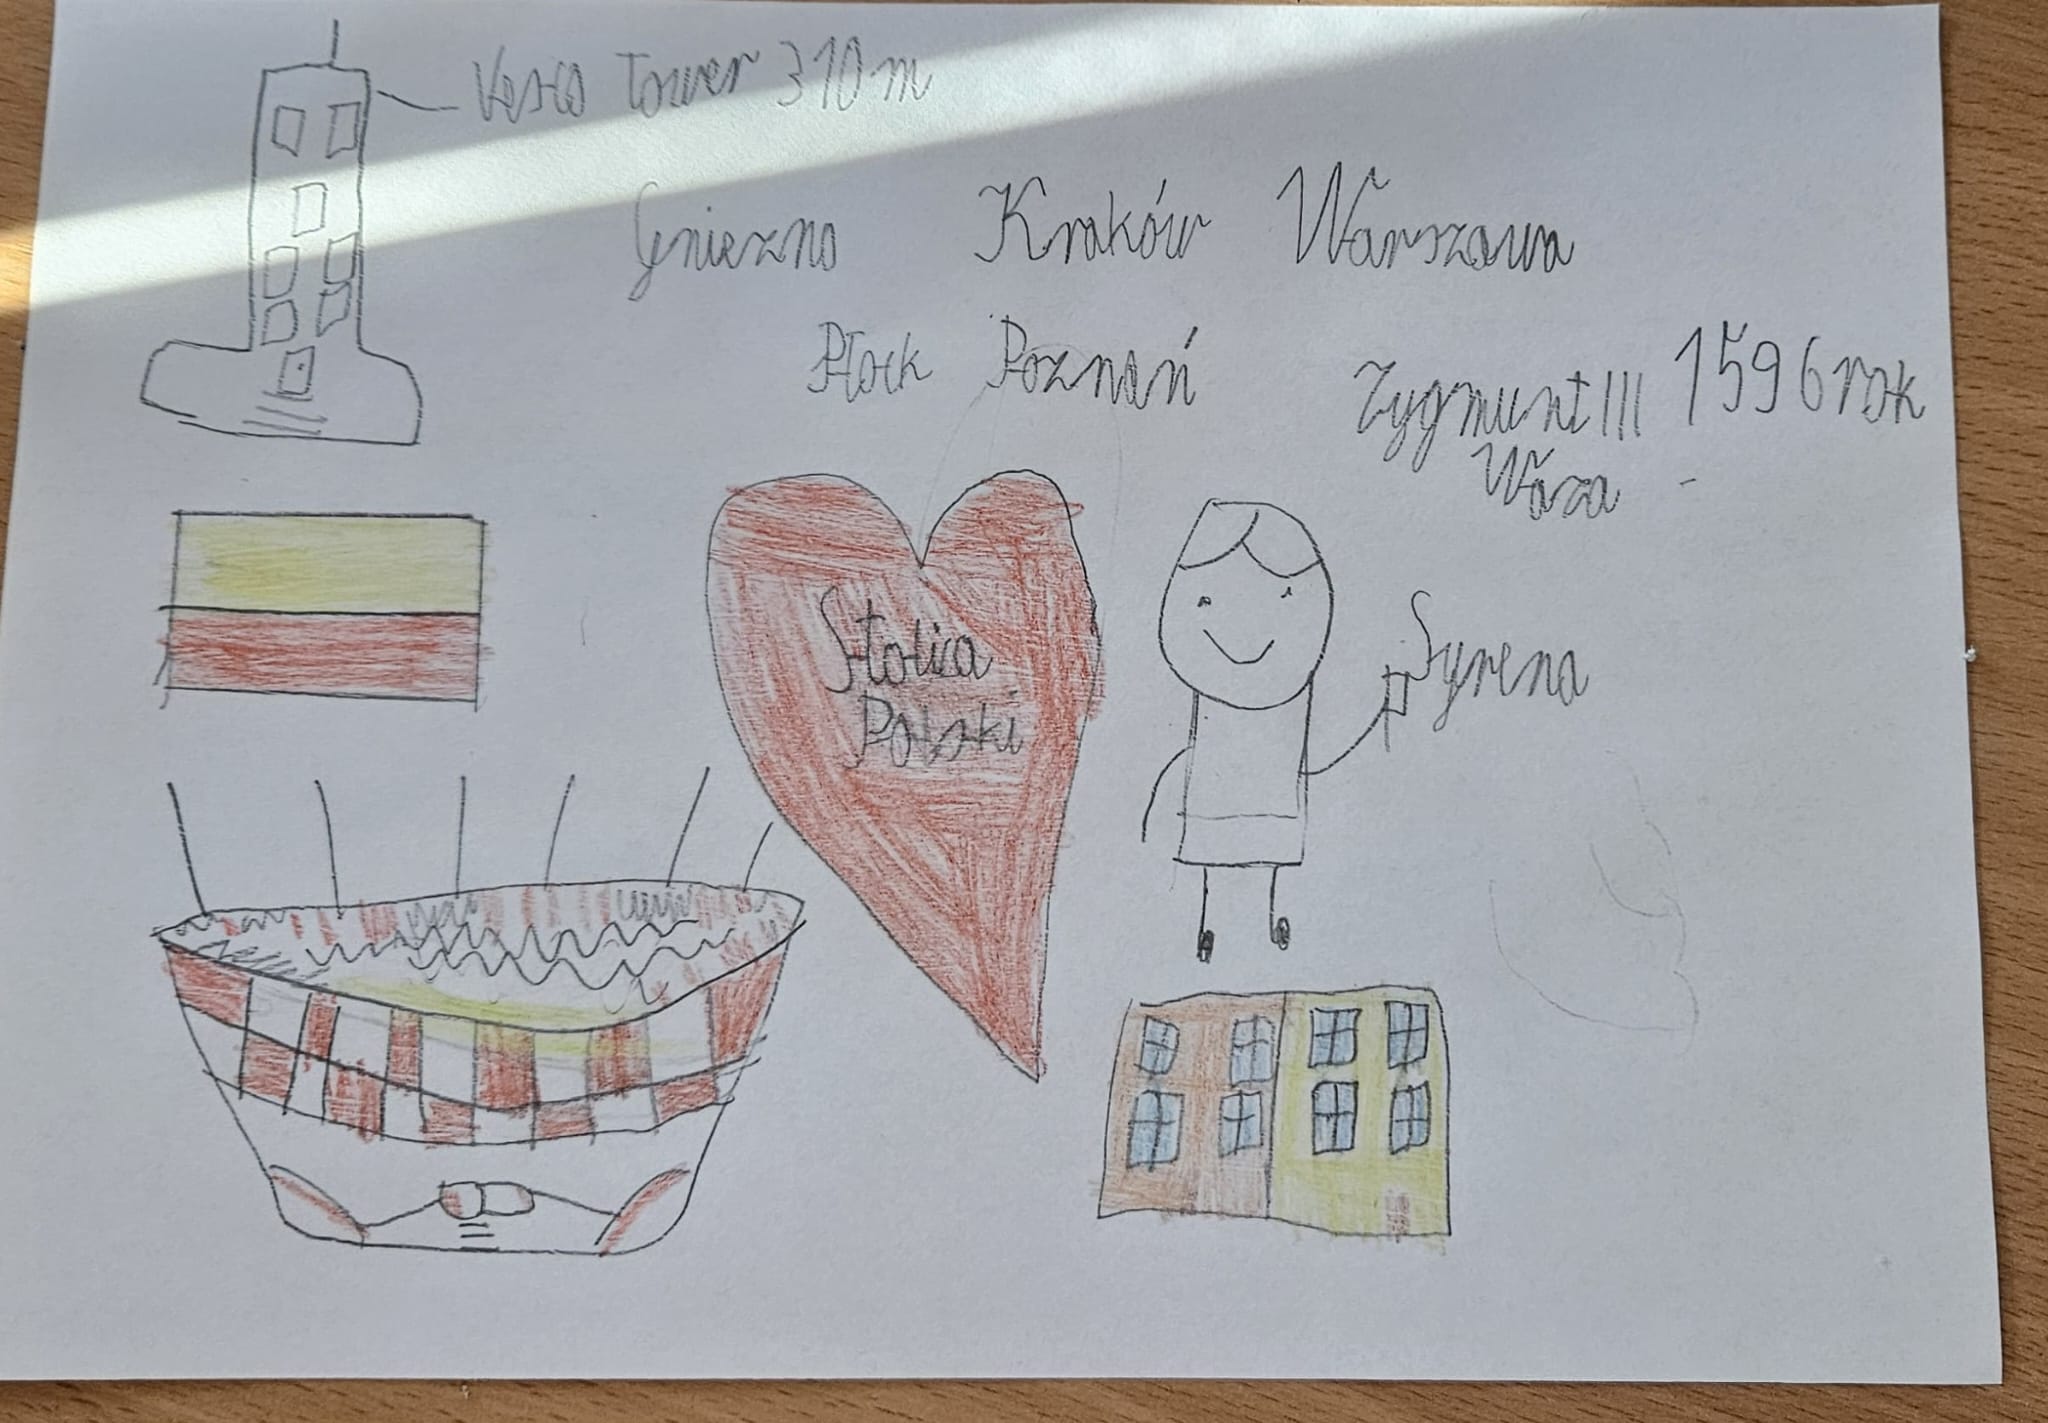 Vesco Tower 310 m
Gniezno Kraków Warszawa
Płock Poznań
Zygmunt III 1596 rok
Waza
Stolica
Polski
Syrena